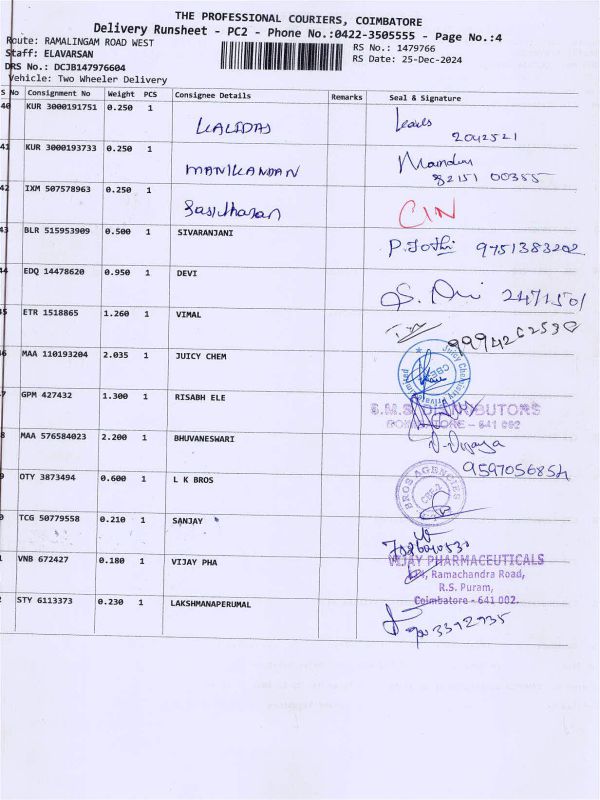 THE PROFESSIONAL COURIERS, COIMBATORE
Delivery Runsheet - PC2 - Phone No.:0422-3505555 - Page No.:4
Route: RAMALINGAM ROAD WEST
RS No.: 1479766
Staff: ELAVARSAN
RS Date: 25-Dec-2024
DRS No.: DCJB147976604
Vehicle: Two Wheeler Delivery
S No Consignment No Weight PCS Consignee Details Remarks Seal & Signature
40 KUR 3000191751 0.250 1 KALIDAS
2042521
41 KUR 3000193733 0.250 1 MANIKANDAN
82151 00355
42 IXM 507578963 0.250 1 Sasidharan CIN
43 BLR 515953909 0.500 1 SIVARANJANI P. Jothi 9751383202
44 EDQ 14478620 0.950 1 DEVI 2471501
5 ETR 1518865 1.260 1 VIMAL 9994262530
6 MAA 110193204 2.035 1 JUICY CHEM
7 GPM 427432 1.300 1 RISABH ELE S.M.S. DISTRIBUTORS
COIMBATORE - 641 002
8 MAA 576584023 2.200 1 BHUVANESWARI V. Vijaya
9597056854
9 OTY 3873494 0.600 1 L K BROS BROS AGENCIES CBE-2
0 TCG 50779558 0.210 1 SANJAY
1 VNB 672427 0.180 1 VIJAY PHA VIJAY PHARMACEUTICALS
Ramachandra Road,
R.S. Puram,
Coimbatore - 641 002.
2 STY 6113373 0.230 1 LAKSHMANAPERUMAL